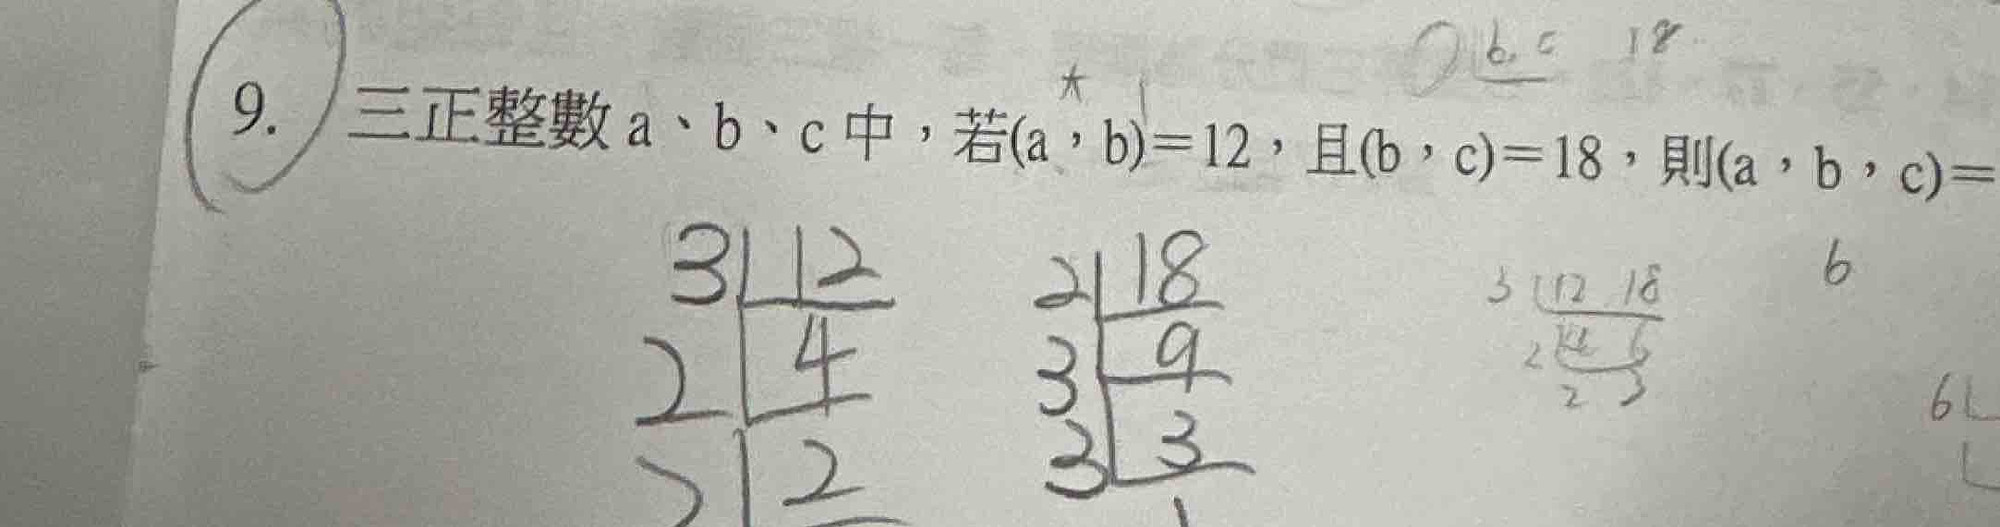 b. c 18
9. 三正整數 a、b、c 中，若(a，b)=12，且(b，c)=18，則(a，b，c)=
6
3 12
2 4
2 2
2 18
3 9
3 3
1
3 12 18
2 6
2 3
6